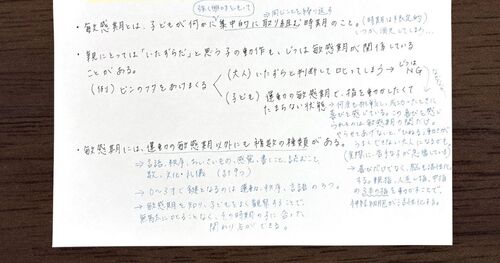 強い興味をもって
→同じことを繰り返す
・敏感期とは、子どもが何かに集中的に取り組む時期のこと。(時期は限定的)
いつか、消失してしまう…
・親にとっては「いたずらだ」と思う子の動作も、じつは敏感期が関係している
ことがある。
(例) ビンのフタをあけまくる
(大人) いたずらと判断して叱ってしまう→じつはNG
(子ども) 運動の敏感期で、指を動かしたくて
たまらない状態
→何度も挑戦し、成功したときに
喜びを感じている。この喜びを感じ
られるのは敏感期の間だけ。
やらせてあげないと、「ひねる」動きが
うまくできない大人になるかも
(実際に、苦手な子が急増している)
→喜びだけでなく、脳も活性化
する。親指、人差し指、中指
の3本の指を動かすことで、
神経細胞が活性化する。
・敏感期には、運動の敏感期以外にも複数の種類がある。
→言語、秩序、小さいもの、感覚、書くこと、読むこと、
数、文化・礼儀 (計9つ)
→0〜3才で鍵となるのは運動、秩序、言語の3つ。
→敏感期を知り、子どもをよく観察することで、
無駄に叱ることなく、その時期の子に合った
関わり方ができる。